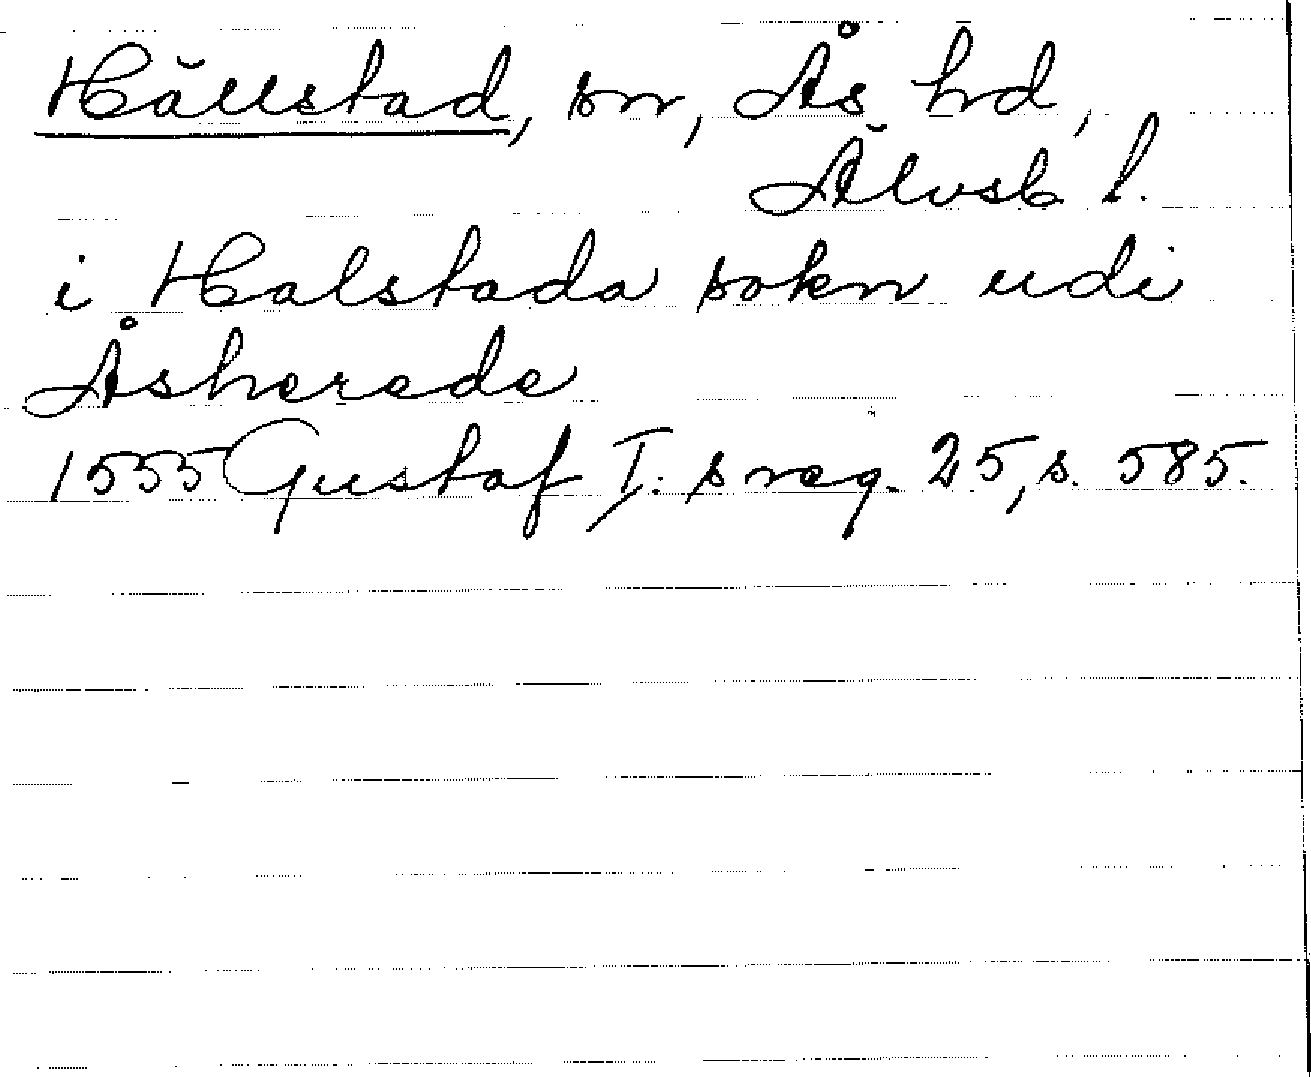 Hällstad, sn, Ås hd,
Älvsb l.
i Halstada sokn udi
Åsherede
1555 Gustaf I:s reg. 25, s. 585.